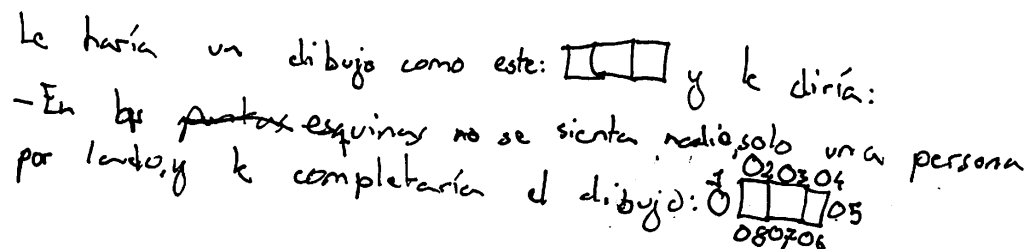 Le haría un dibujo como este: y le diría:
-En las puntas esquinas no se sienta nadie, solo una persona
por lado, y le completaría el dibujo: 1 0 02 03 04 05 06 07 08